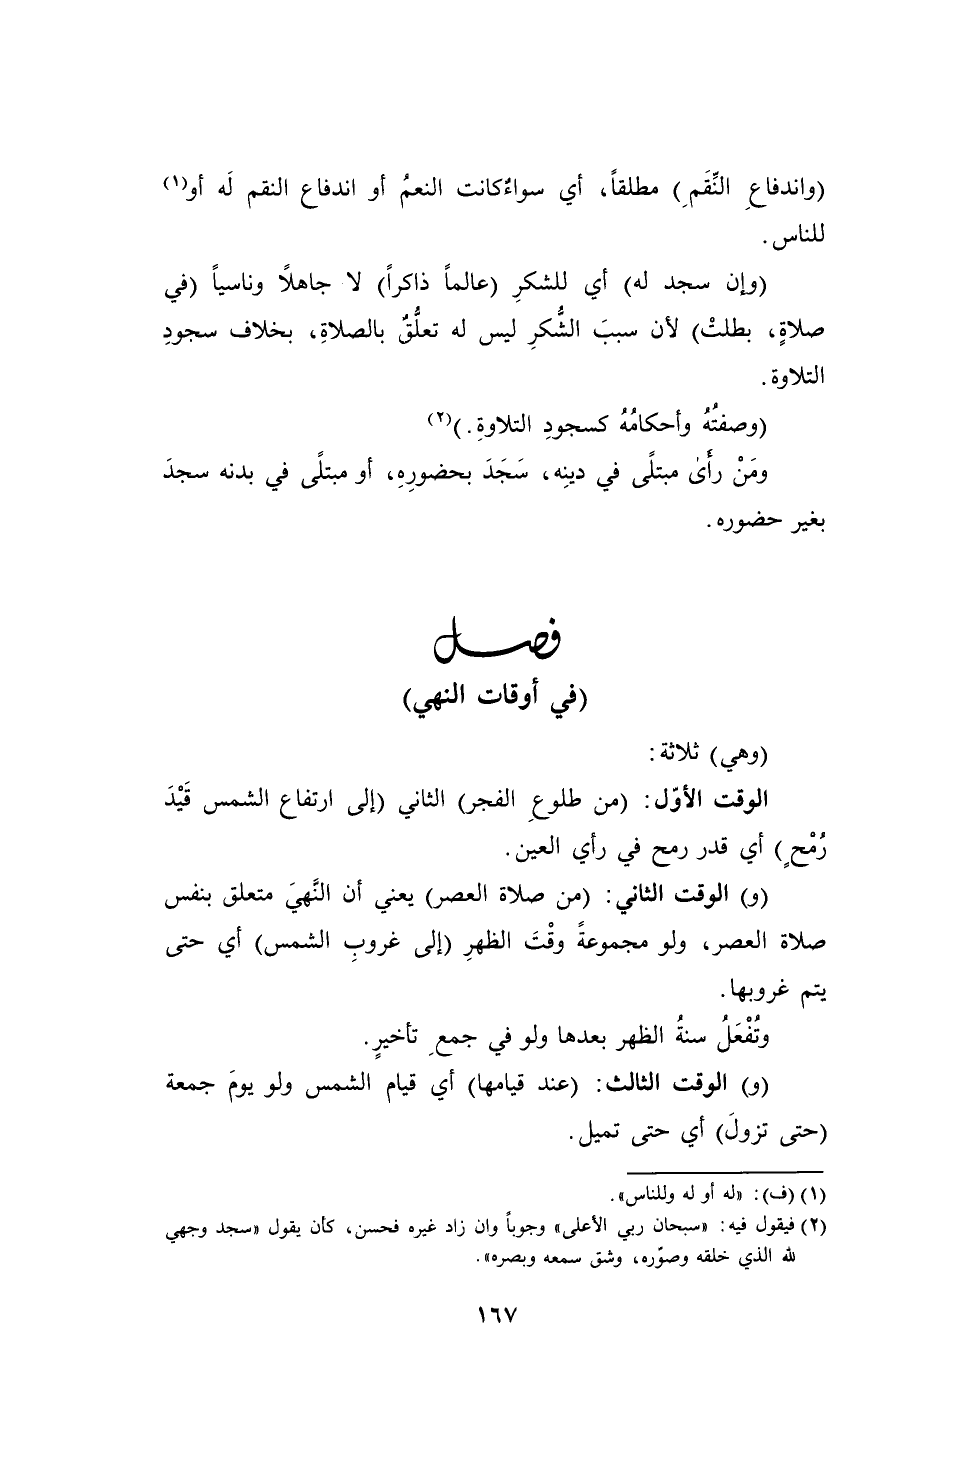 (واندفاعِ النِّقَمِ) مطلقاً، أي سواءٌ كانت النعمُ أو اندفاع النقم لَه أو(١)
للناس.
(وإن سجد له) أي للشكرِ (عالماً ذاكراً) لا جاهلًا وناسياً (في
صلاةٍ، بطلتْ) لأن سببَ الشُّكرِ ليس له تعلُّقٌ بالصلاةِ، بخلاف سجودِ
التلاوة.
(وصفتُهُ وأحكامُهُ كسجودِ التلاوةِ.)(٢)
ومَنْ رأَىٰ مبتلًى في دينِه، سَجَدَ بحضورِهِ، أو مبتلًى في بدنه سجدَ
بغير حضوره.
فصل
(في أوقات النهي)
(وهي) ثلاثة:
الوقت الأوّل: (من طلوعِ الفجر) الثاني (إلى ارتفاع الشمس قَيْدَ
رُمْحٍ) أي قدر رمح في رأي العين.
(و) الوقت الثاني: (من صلاة العصر) يعني أن النَّهيَ متعلق بنفس
صلاة العصر، ولو مجموعةً وقْتَ الظهرِ (إلى غروبِ الشمس) أي حتى
يتم غروبها.
وتُفْعَلُ سنةُ الظهر بعدها ولو في جمعِ تأخيرٍ.
(و) الوقت الثالث: (عند قيامها) أي قيام الشمس ولو يومَ جمعة
(حتى تزولَ) أي حتى تميل.
(١) (ف): «له أو له وللناس».
(٢) فيقول فيه: «سبحان ربي الأعلى» وجوباً وان زاد غيره فحسن، كأن يقول «سجد وجهي
لله الذي خلقه وصوّره، وشق سمعه وبصره».
١٦٧